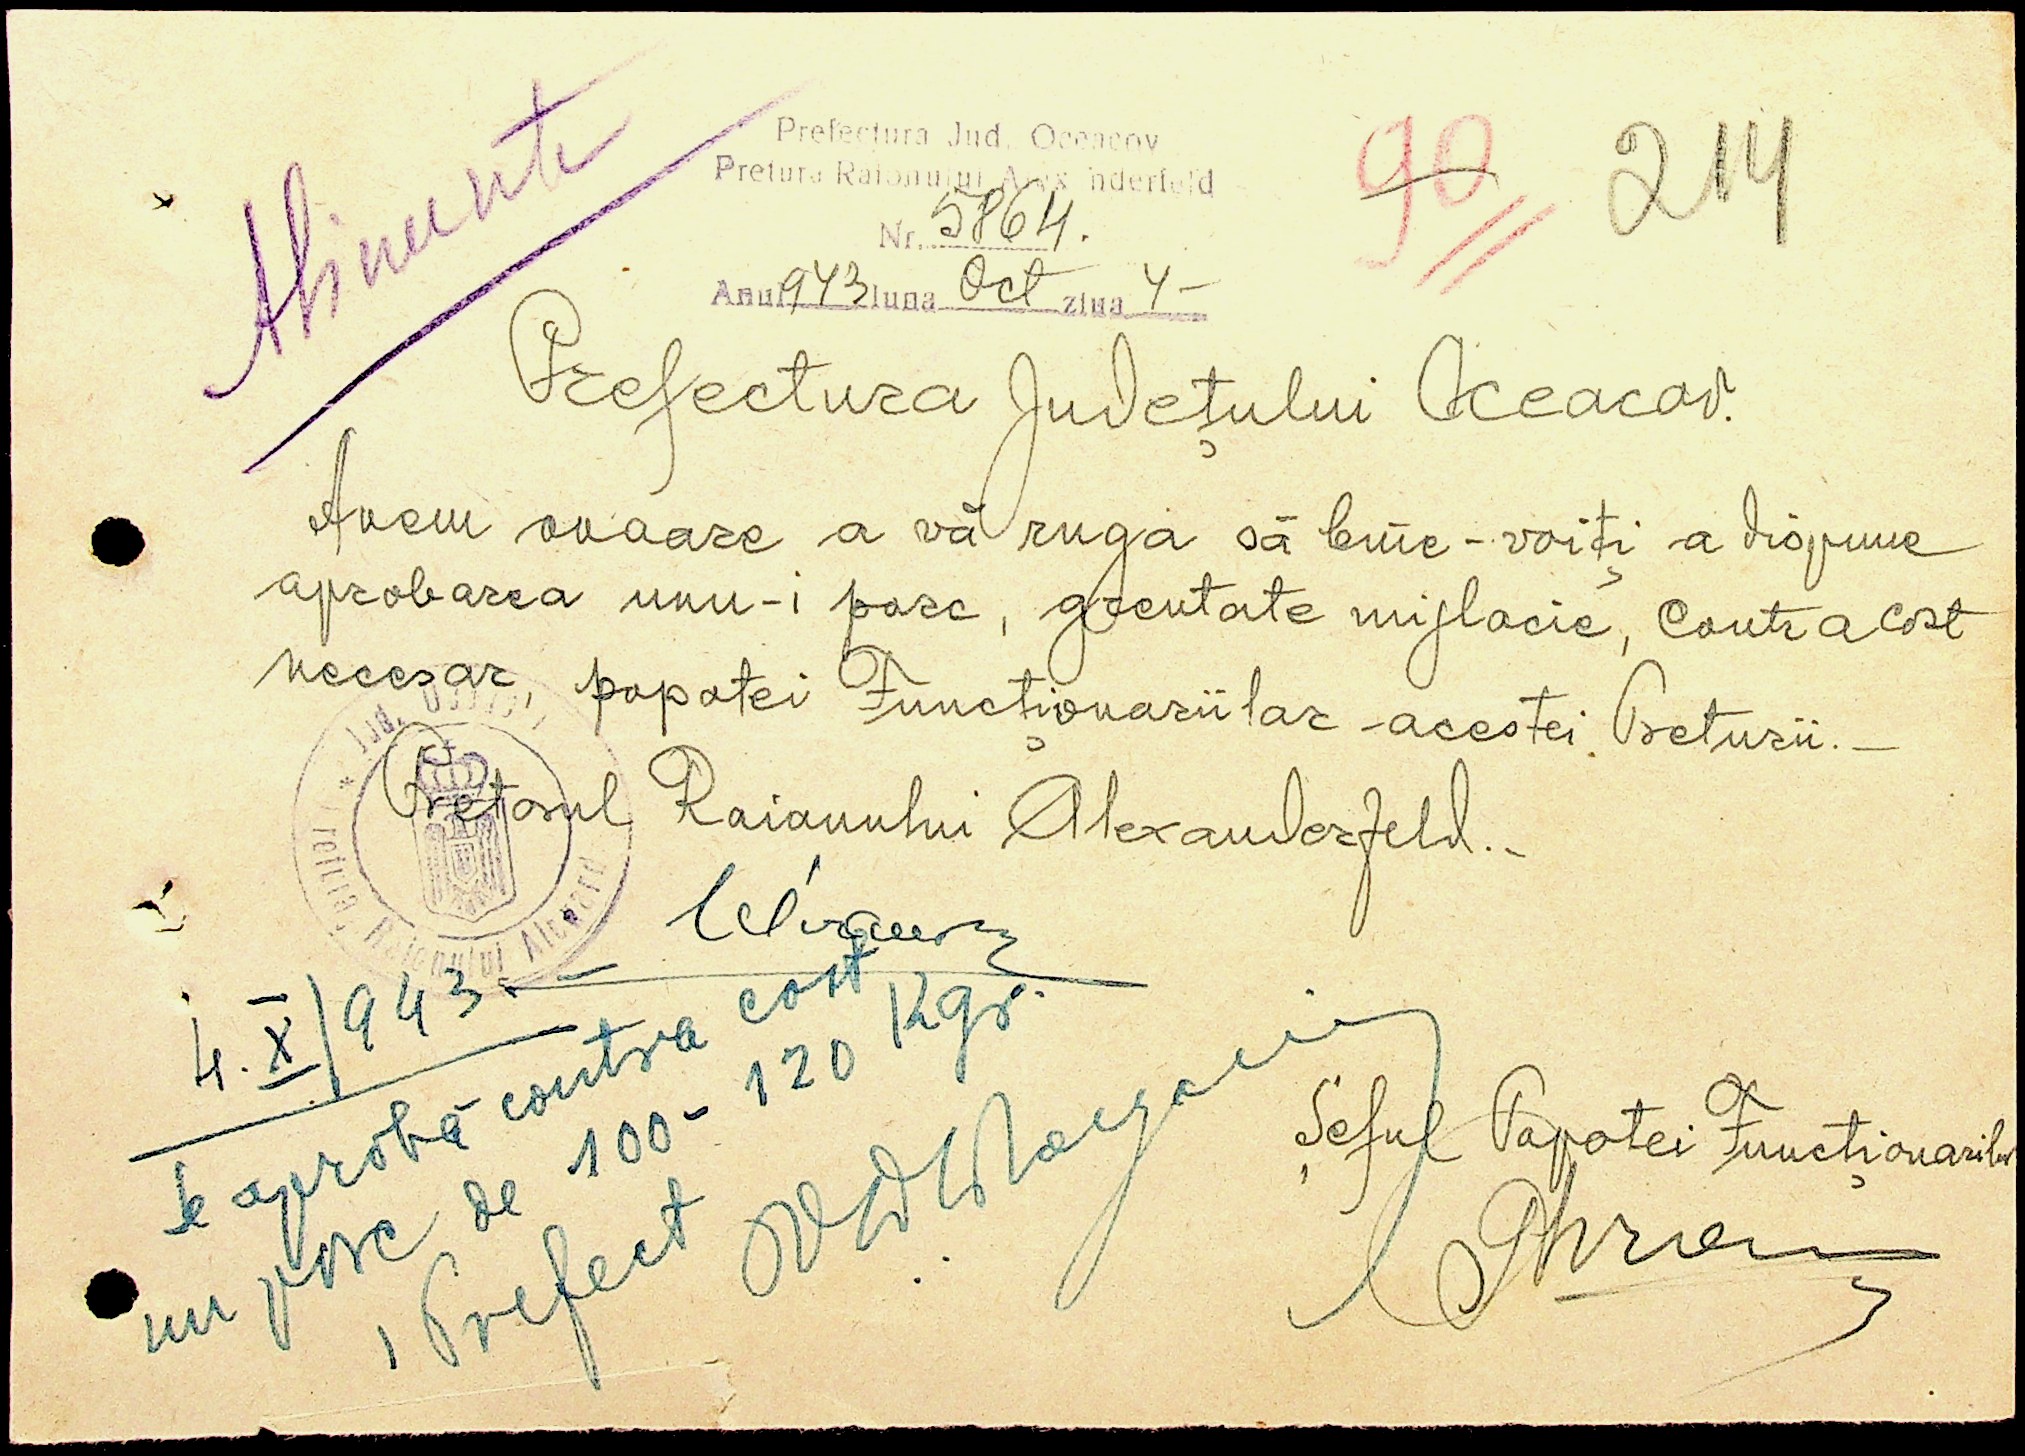 Alimente
Prefectura Jud. Oceacov
Pretura Raionului Alexanderfeld
Nr. 5864.
Anul 943 luna Oct ziua 4-
90
214
Prefectura Județului Oceacov.
Avem onoare a vă ruga să bine-voiți a dispune
aprobarea unu-i porc, greutate mijlocie, contra cost
necesar, popotei Funcționariilor acestei Preturii.-
Pretorul Raionului Alexanderfeld.-
4.X/943.-
Se aprobă contra cost
un porc de 100-120 Kgr.
Prefect
Șeful Popotei Funcționarilor
* Jud.
Raionului